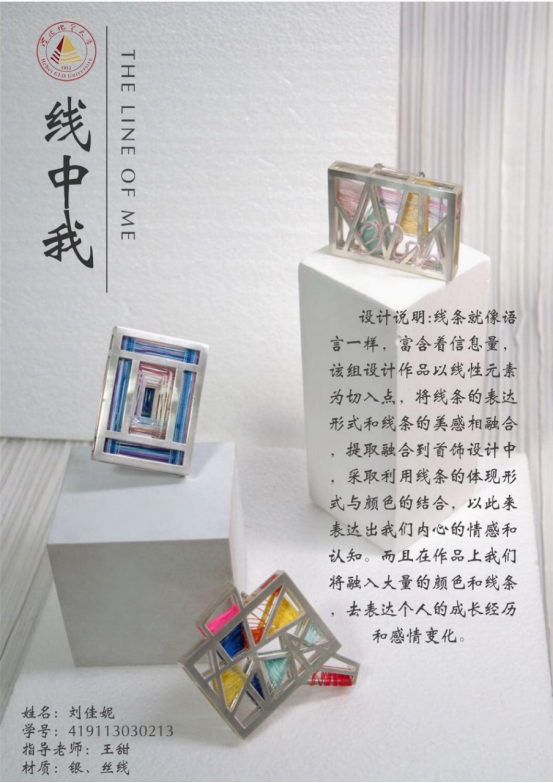 线中我
THE LINE OF ME
设计说明:线条就像语
言一样，富含着信息量，
该组设计作品以线性元素
为切入点，将线条的表达
形式和线条的美感相融合
，提取融合到首饰设计中
，采取利用线条的体现形
式与颜色的结合，以此来
表达出我们内心的情感和
认知。而且在作品上我们
将融入大量的颜色和线条
，去表达个人的成长经历
和感情变化。
姓名：刘佳妮
学号：419113030213
指导老师：王甜
材质：银、丝线